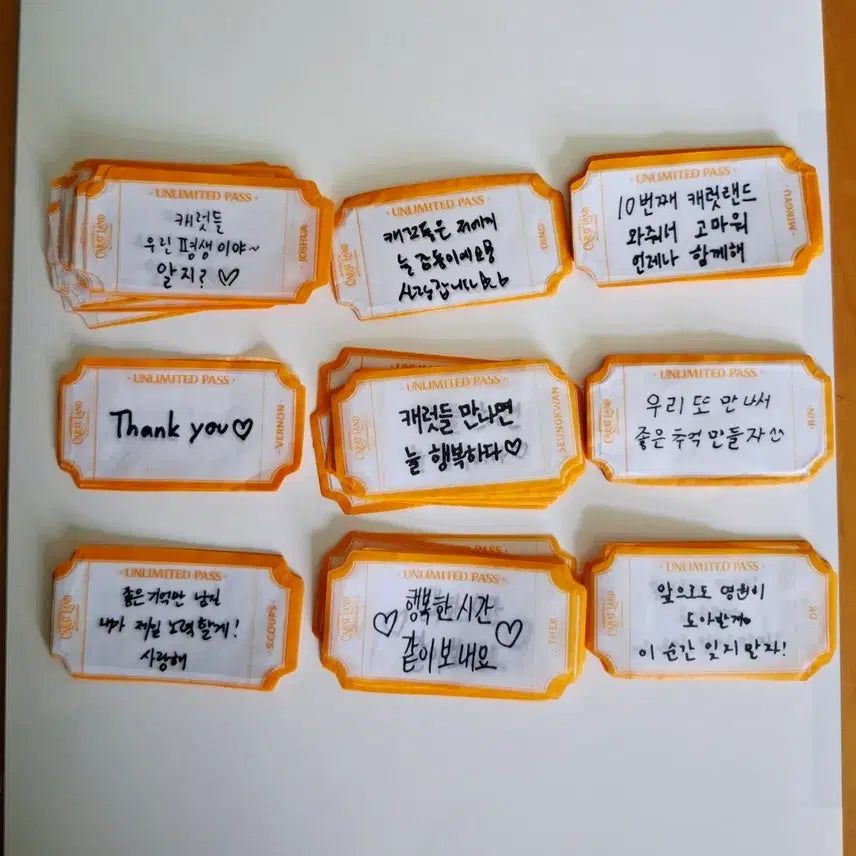 UNLIMITED PASS
CARAT LAND
캐럿들
우린 평생이야~
알지? ♡
JOSHUA
UNLIMITED PASS
CARAT LAND
캐럿들은 저에게
늘 감동이에요오
사랑합니다
DINO
UNLIMITED PASS
CARAT LAND
10번째 캐럿랜드
와줘서 고마워
언제나 함께해
MINGYU
UNLIMITED PASS
CARAT LAND
Thank you♡
VERNON
UNLIMITED PASS
UNLIMITED PASS
CARAT LAND
캐럿들 만나면
늘 행복하다♡
SEUNGKWAN
UNLIMITED PASS
CARAT LAND
우리 또 만나서
좋은 추억 만들자^^
JUN
UNLIMITED PASS
CARAT LAND
좋은 기억만 남길
내가 제일 노력할게!
사랑해
S.COUPS
UNLIMITED PASS
CARAT LAND
행복한 시간
♡ ♡
같이 보내요
THE8
UNLIMITED PASS
CARAT LAND
앞으로도 영원히
도아할게
이 순간 잊지 말자!
DK